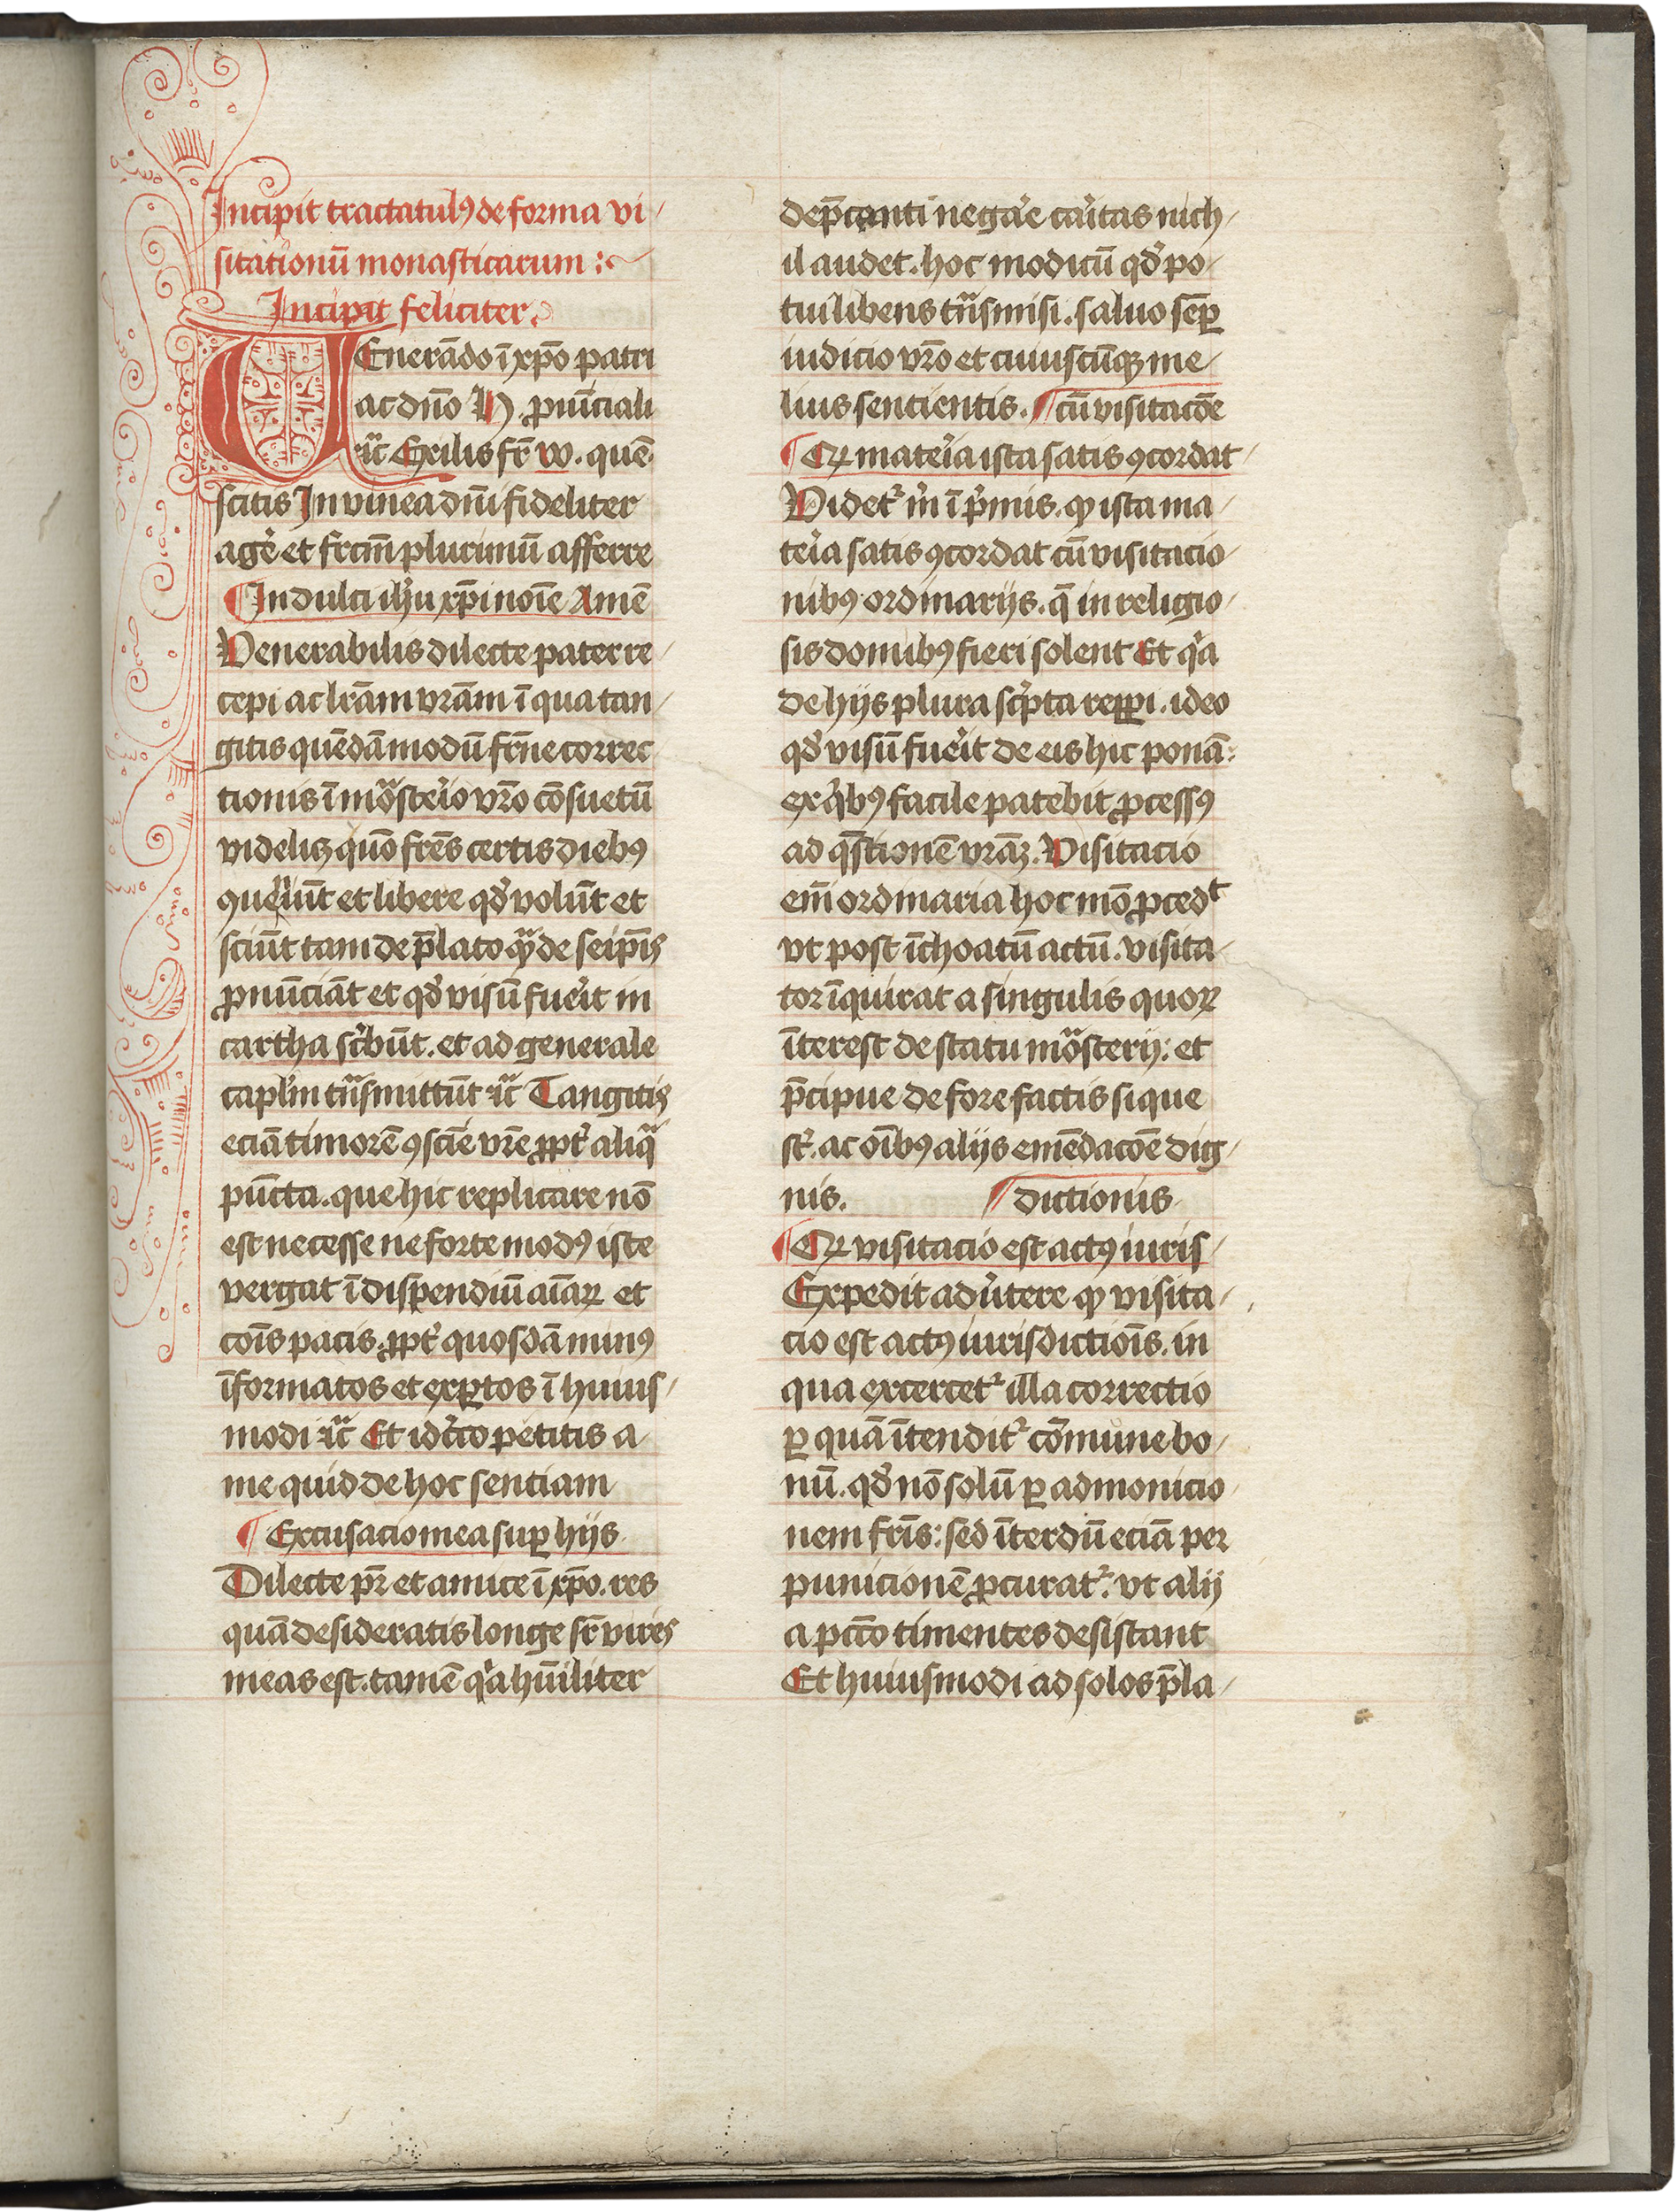 Incipit tractatulꝰ de forma vi/
sitationū monasticarum :~
Incipit feliciter.
VEnerādo ī xp̄o patri
ac dn̄o N. ꝓuīciali
ꝛcͣ Exilis fr̄ w. quē
scitis In vinea dn̄i fideliter
age᷒ et fr̄cm̄ plurimū afferre
¶ In dulci ih̓u xp̄i noīe Amē
Venerabilis dilecte pater re/
cepi ac lr̄am vr̄am ī qua tan/
gitis quēdā modū fr̄ne correc/
tionis ī moͣste᷒io vr̄o cōsuetū
videlicꝫ quō fr̄es certis diebꝰ
ꝯueniūt et libere qd̓ volūt et
sciūt tam de p̄lato qͣ de seip̄is
ꝓnūciāt et qd̓ visū fue᷒it in
cartha sc͛būt. et ad generale
capl̓m tn̄ͣsmittūt ꝛcͣ Tangitis
eciā timorē ꝯscīe vr̄e ꝓpt᷒ aliqͣ
pūcta. que hic replicare nō
est necesse ne forte modꝰ iste
vergat ī dispendiū aīaꝝ et
coīs pacis. ꝓpt᷒ quosdā minꝰ
īformatos et exꝑtos ī huius/
modi ꝛcͣ Et idc͛co petitis a/
me quid de hoc sentiam
¶ Excusacio mea suꝑ hijs
Dilecte pr̄ et amice ī xp̄o. res
quā desideratis longe sr̄ vires
meas est. tamē qͥa hūiliter
dep̄canti nega᷒e ca᷒itas nich/
il audet. hoc modicū qd̓ po/
tui libens tn̄ͣsmisi. saluo semꝑ
iudicio vr̄o et cuiuscūqꝫ me/
lius sentientis. ¶ cū visitacōe
¶ Qꝙ mate᷒ia ista satis ꝯcordat/
Videt᷒ m͛ ī p͛mis. ꝙ ista ma/
te᷒ia satis ꝯcordat cū visitacio/
nibꝰ ordinarijs. q̄ in religio/
sis domibꝰ fieri solent Et qͥa
de hijs plura sc͛pta repꝑi. ideo
qd̓ visū fue᷒it de eis hic ponā:
ex qͥbꝰ facile patebit ꝓcessꝰ
ad q̄stionē vr̄aꝫ. Visitacio
em̄ ordinaria hoc mō ꝓcedᵗ
vt post īchoatū actū. visita/
tor īquirat a singulis quoꝝ
īterest de statu moͣsterij: et
p̄cipue de forefactis si que
st᷒. ac oībꝰ alijs emēdacōe dig/
nis. ¶ dictionis
¶ Qꝙ visitacio est actꝰ iuris/
Expedit aduc͛tere ꝙ visita/
cio est actꝰ iurisdictiōis. in
qua excercet᷒ illa correctio
ꝑ quā ītendit᷒ cōmune bo/
nū. qd̓ nō solū ꝑ admonicio/
nem fr̄is: sed īterdū eciā per
punicionē ꝓcurat᷒. vt alij
a pcc̄o timentes desistant
Et huiusmodi ad solos p̄la/